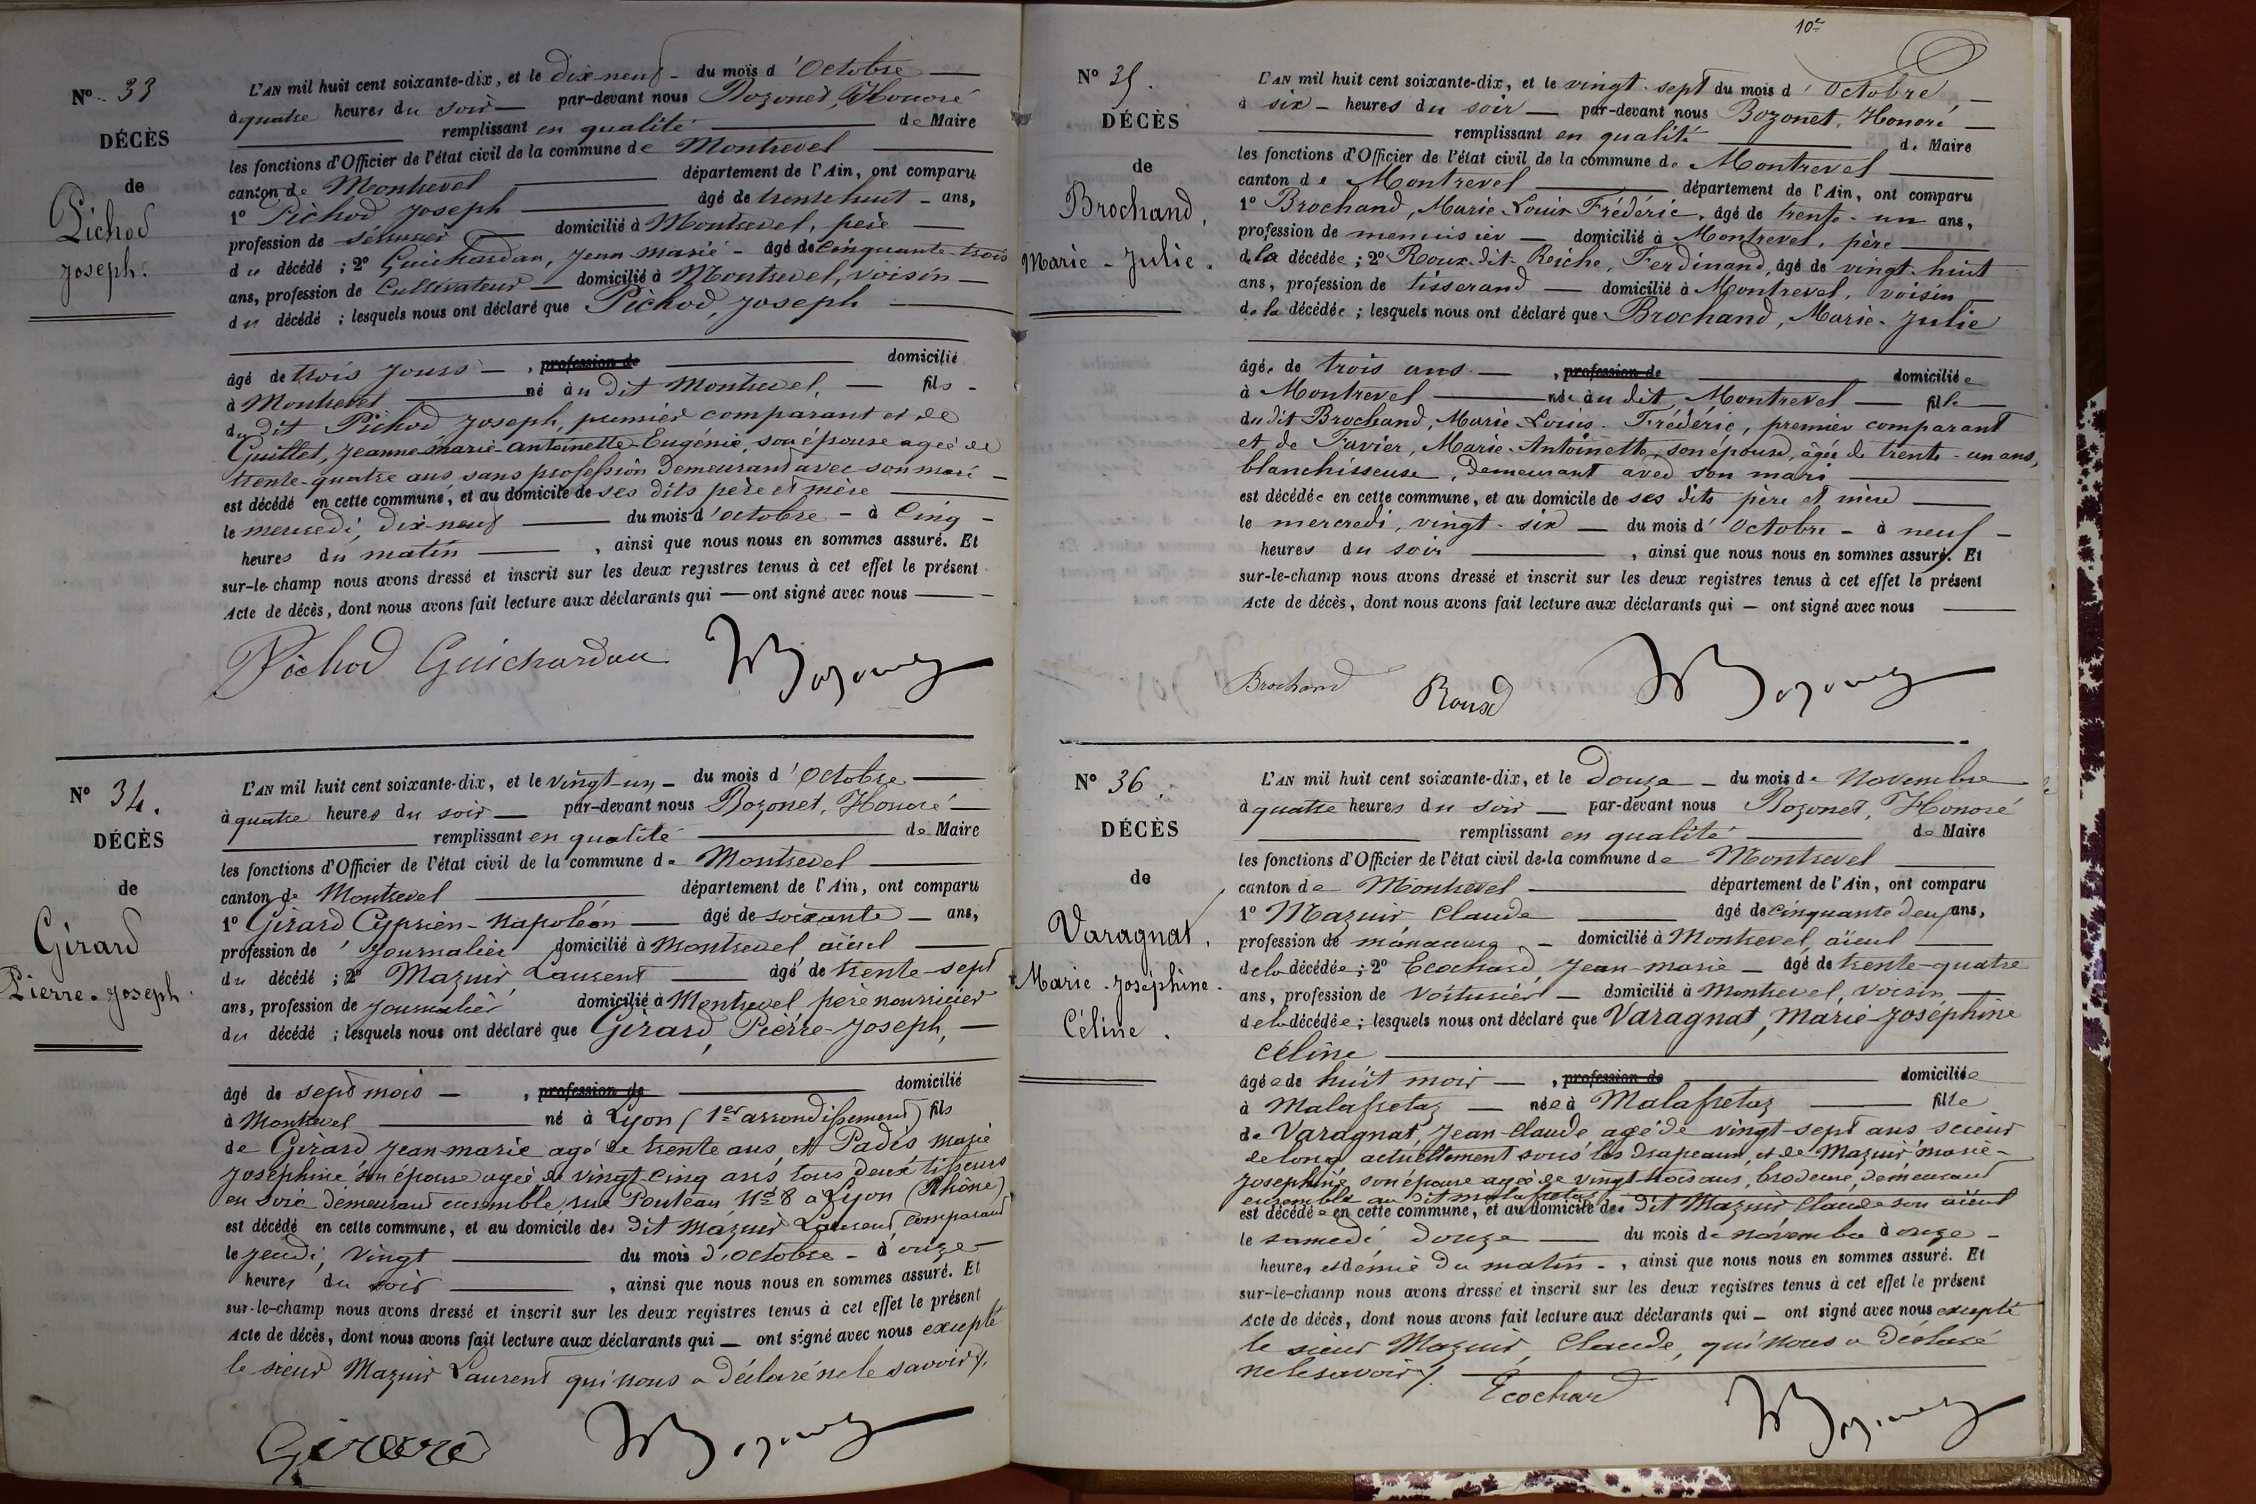 N° 33
DÉCÈS
de
Pichod
Joseph.
L'AN mil huit cent soixante-dix, et le dix-neuf du mois d'Octobre
à quatre heures du soir par-devant nous Bozonet, Honoré
remplissant en qualité de Maire
les fonctions d'Officier de l'état civil de la commune de Montrevel
canton de Montrevel département de l'Ain, ont comparu
1° Pichod Joseph âgé de trente huit ans,
profession de serrurier domicilié à Montrevel, père
du décédé ; 2° Guichardan, Jean-Marie âgé de cinquante-trois
ans, profession de Cultivateur domicilié à Montrevel, voisin
du décédé ; lesquels nous ont déclaré que Pichod, Joseph
âgé de trois jours, profession de domicilié
à Montrevel né au dit Montrevel, fils
du dit Pichod Joseph, premier comparant et de
Guillet, Jeanne-marie-antoinette-Eugénie, son épouse agée de
trente-quatre ans, sans profession demeurant avec son mari
est décédé en cette commune, et au domicile de ses dits père et mère
le mercredi, dix-neuf du mois d'octobre à Cinq
heures du matin, ainsi que nous nous en sommes assuré. Et
sur-le-champ nous avons dressé et inscrit sur les deux registres tenus à cet effet le présent
Acte de décès, dont nous avons fait lecture aux déclarants qui ont signé avec nous
Pichod Guichardan HBozonet
N° 34.
DÉCÈS
de
Girard
Pierre-Joseph.
L'AN mil huit cent soixante-dix, et le vingt-un du mois d'Octobre
à quatre heures du soir par-devant nous Bozonet, Honoré
remplissant en qualité de Maire
les fonctions d'Officier de l'état civil de la commune de Montrevel
canton de Montrevel département de l'Ain, ont comparu
1° Girard Cyprien-Napoléon âgé de soixante ans,
profession de Journalier domicilié à Montrevel aïeul
du décédé ; 2° Mazuir, Laurent âgé de trente-sept
ans, profession de Journalier domicilié à Montrevel père nourricier
du décédé ; lesquels nous ont déclaré que Girard, Pierre-Joseph,
âgé de sept mois, profession de domicilié
à Montrevel né à Lyon (1er arrondissement) fils
de Girard Jean-marie agé de trente ans, et Padis Marie
Joséphine son épouse agée de vingt cinq ans, tous deux tisseurs
en soie demeurant ensemble, rue Pouteau N° 8 à Lyon (Rhône)
est décédé en cette commune, et au domicile des dit Mazuir Laurent comparant
le jeudi, vingt du mois d'octobre à onze
heures du soir, ainsi que nous nous en sommes assuré. Et
sur-le-champ nous avons dressé et inscrit sur les deux registres tenus à cet effet le présent
Acte de décès, dont nous avons fait lecture aux déclarants qui ont signé avec nous excepté
le sieur Mazuir Laurent qui nous a déclaré ne le savoir /.
Girard HBozonet
10e
N° 35.
DÉCÈS
de
Brochand,
Marie-Julie.
L'AN mil huit cent soixante-dix, et le vingt-sept du mois d'Octobre,
à six heures du soir par-devant nous Bozonet, Honoré,
remplissant en qualité de Maire
les fonctions d'Officier de l'état civil de la commune de Montrevel
canton de Montrevel département de l'Ain, ont comparu
1° Brochand, Marie-Louis Frédéric, âgé de trente-un ans,
profession de menuisier domicilié à Montrevel, père
de la décédée ; 2° Roux-dit-Reiche, Ferdinand, âgé de vingt-huit
ans, profession de tisserand domicilié à Montrevel, voisin
de la décédée ; lesquels nous ont déclaré que Brochand, Marie-Julie
âgée de trois ans, profession de domiciliée
à Montrevel née au dit Montrevel fille
du dit Brochand, Marie-Louis-Frédéric, premier comparant
et de Favier, Marie-Antoinette, son épouse, âgée de trente-un ans,
blanchisseuse, demeurant avec son mari
est décédée en cette commune, et au domicile de ses dits père et mère
le mercredi, vingt-six du mois d'Octobre à neuf
heures du soir, ainsi que nous nous en sommes assuré. Et
sur-le-champ nous avons dressé et inscrit sur les deux registres tenus à cet effet le présent
Acte de décès, dont nous avons fait lecture aux déclarants qui ont signé avec nous
Brochand Roux HBozonet
N° 36.
DÉCÈS
de
Varagnat,
Marie-Joséphine-
Céline.
L'AN mil huit cent soixante-dix, et le Douze du mois de Novembre
à quatre heures du soir par-devant nous Bozonet, Honoré
remplissant en qualité de Maire
les fonctions d'Officier de l'état civil de la commune de Montrevel
canton de Montrevel département de l'Ain, ont comparu
1° Mazuir Claude âgé de cinquante deux ans,
profession de manœuvre domicilié à Montrevel, aïeul
de la décédée ; 2° Ecochard Jean-marie âgé de trente-quatre
ans, profession de Voiturier domicilié à Montrevel, voisin
de la décédée ; lesquels nous ont déclaré que Varagnat, Marie-Joséphine
Céline
âgée de huit mois, profession de domiciliée
à Malafretaz née à Malafretaz fille
de Varagnat, Jean-Claude agé de vingt-sept ans scieur
de long actuellement sous les drapeaux, et de Mazuir Marie-
Josephine, son épouse agée de vingt-trois ans, brodeuse, demeurant
ensemble au dit Malafretaz
est décédée en cette commune, et au domicile des dit Mazuir Claude son aïeul
le samedi douze du mois de novembre à onze
heures et demie du matin, ainsi que nous nous en sommes assuré. Et
sur-le-champ nous avons dressé et inscrit sur les deux registres tenus à cet effet le présent
Acte de décès, dont nous avons fait lecture aux déclarants qui ont signé avec nous excepté
le sieur Mazuir, Claude, qui nous a déclaré
ne le savoir /.
Ecochard HBozonet